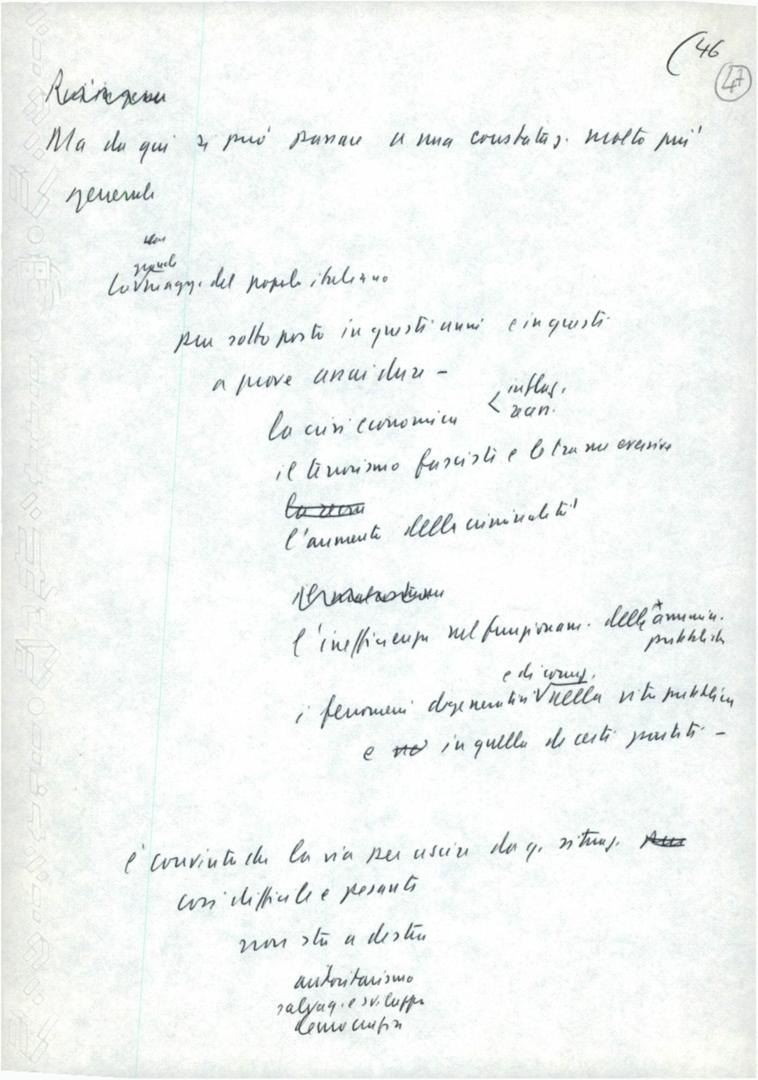 (46
47
Ma da qui si può passare a una constataz. molto più
generale
grande
La magg. del popolo italiano
pur sottoposto in questi anni e in questi
a prove assai dure -
la crisi economica < inflaz.
recess.
il terrorismo fascista e le trame eversive
l'aumento della criminalità
l'inefficienza nel funzionam. della ammin.
pubblica
e di corruz.
i fenomeni degenerativi nella vita pubblica
e in quella di certi partiti -
è convinta che la via per uscire da q. situaz.
così difficile e pesante
non sta a destra
autoritarismo
salvag. e sviluppo
democrazia